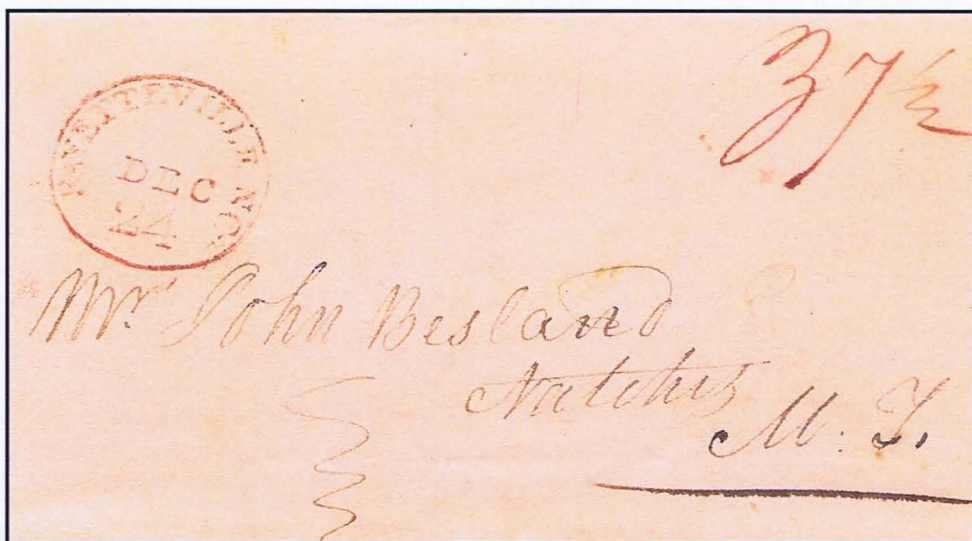 37½
FAYETTEVILLE N.C.
DEC
24
Mr. John Besland
Natches
M. T.